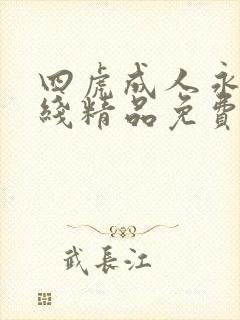 四虎成人永
线精品免費
武長江